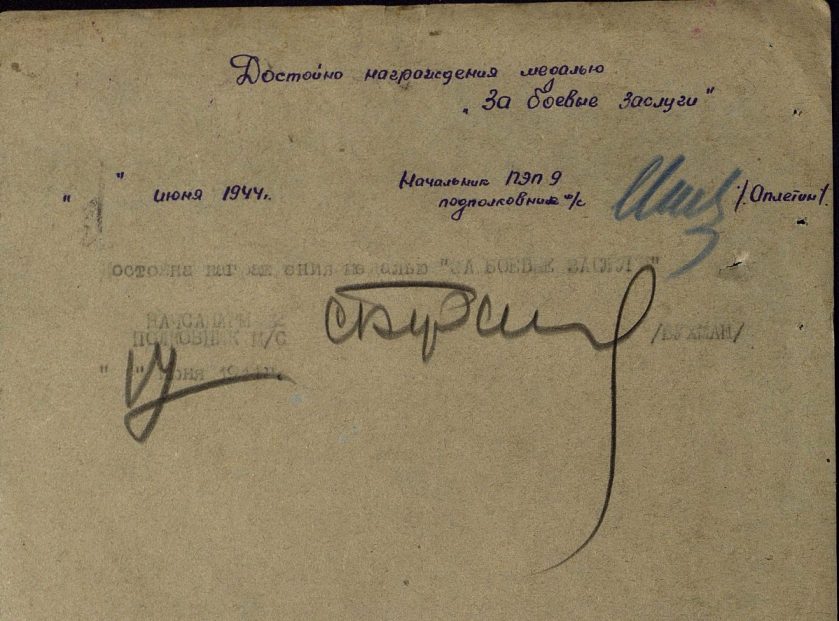 Достойно награждения медалью
„За боевые заслуги"
" " июня 1944г. Начальник ПЭП 9
подполковник м/с /Оплетин/.
Достойна награждения медалью "ЗА БОЕВЫЕ ЗАСЛУГИ"
НАЧСАНАРМ
ПОЛКОВНИК М/С /БУХМАН/
" " июня 1944г.